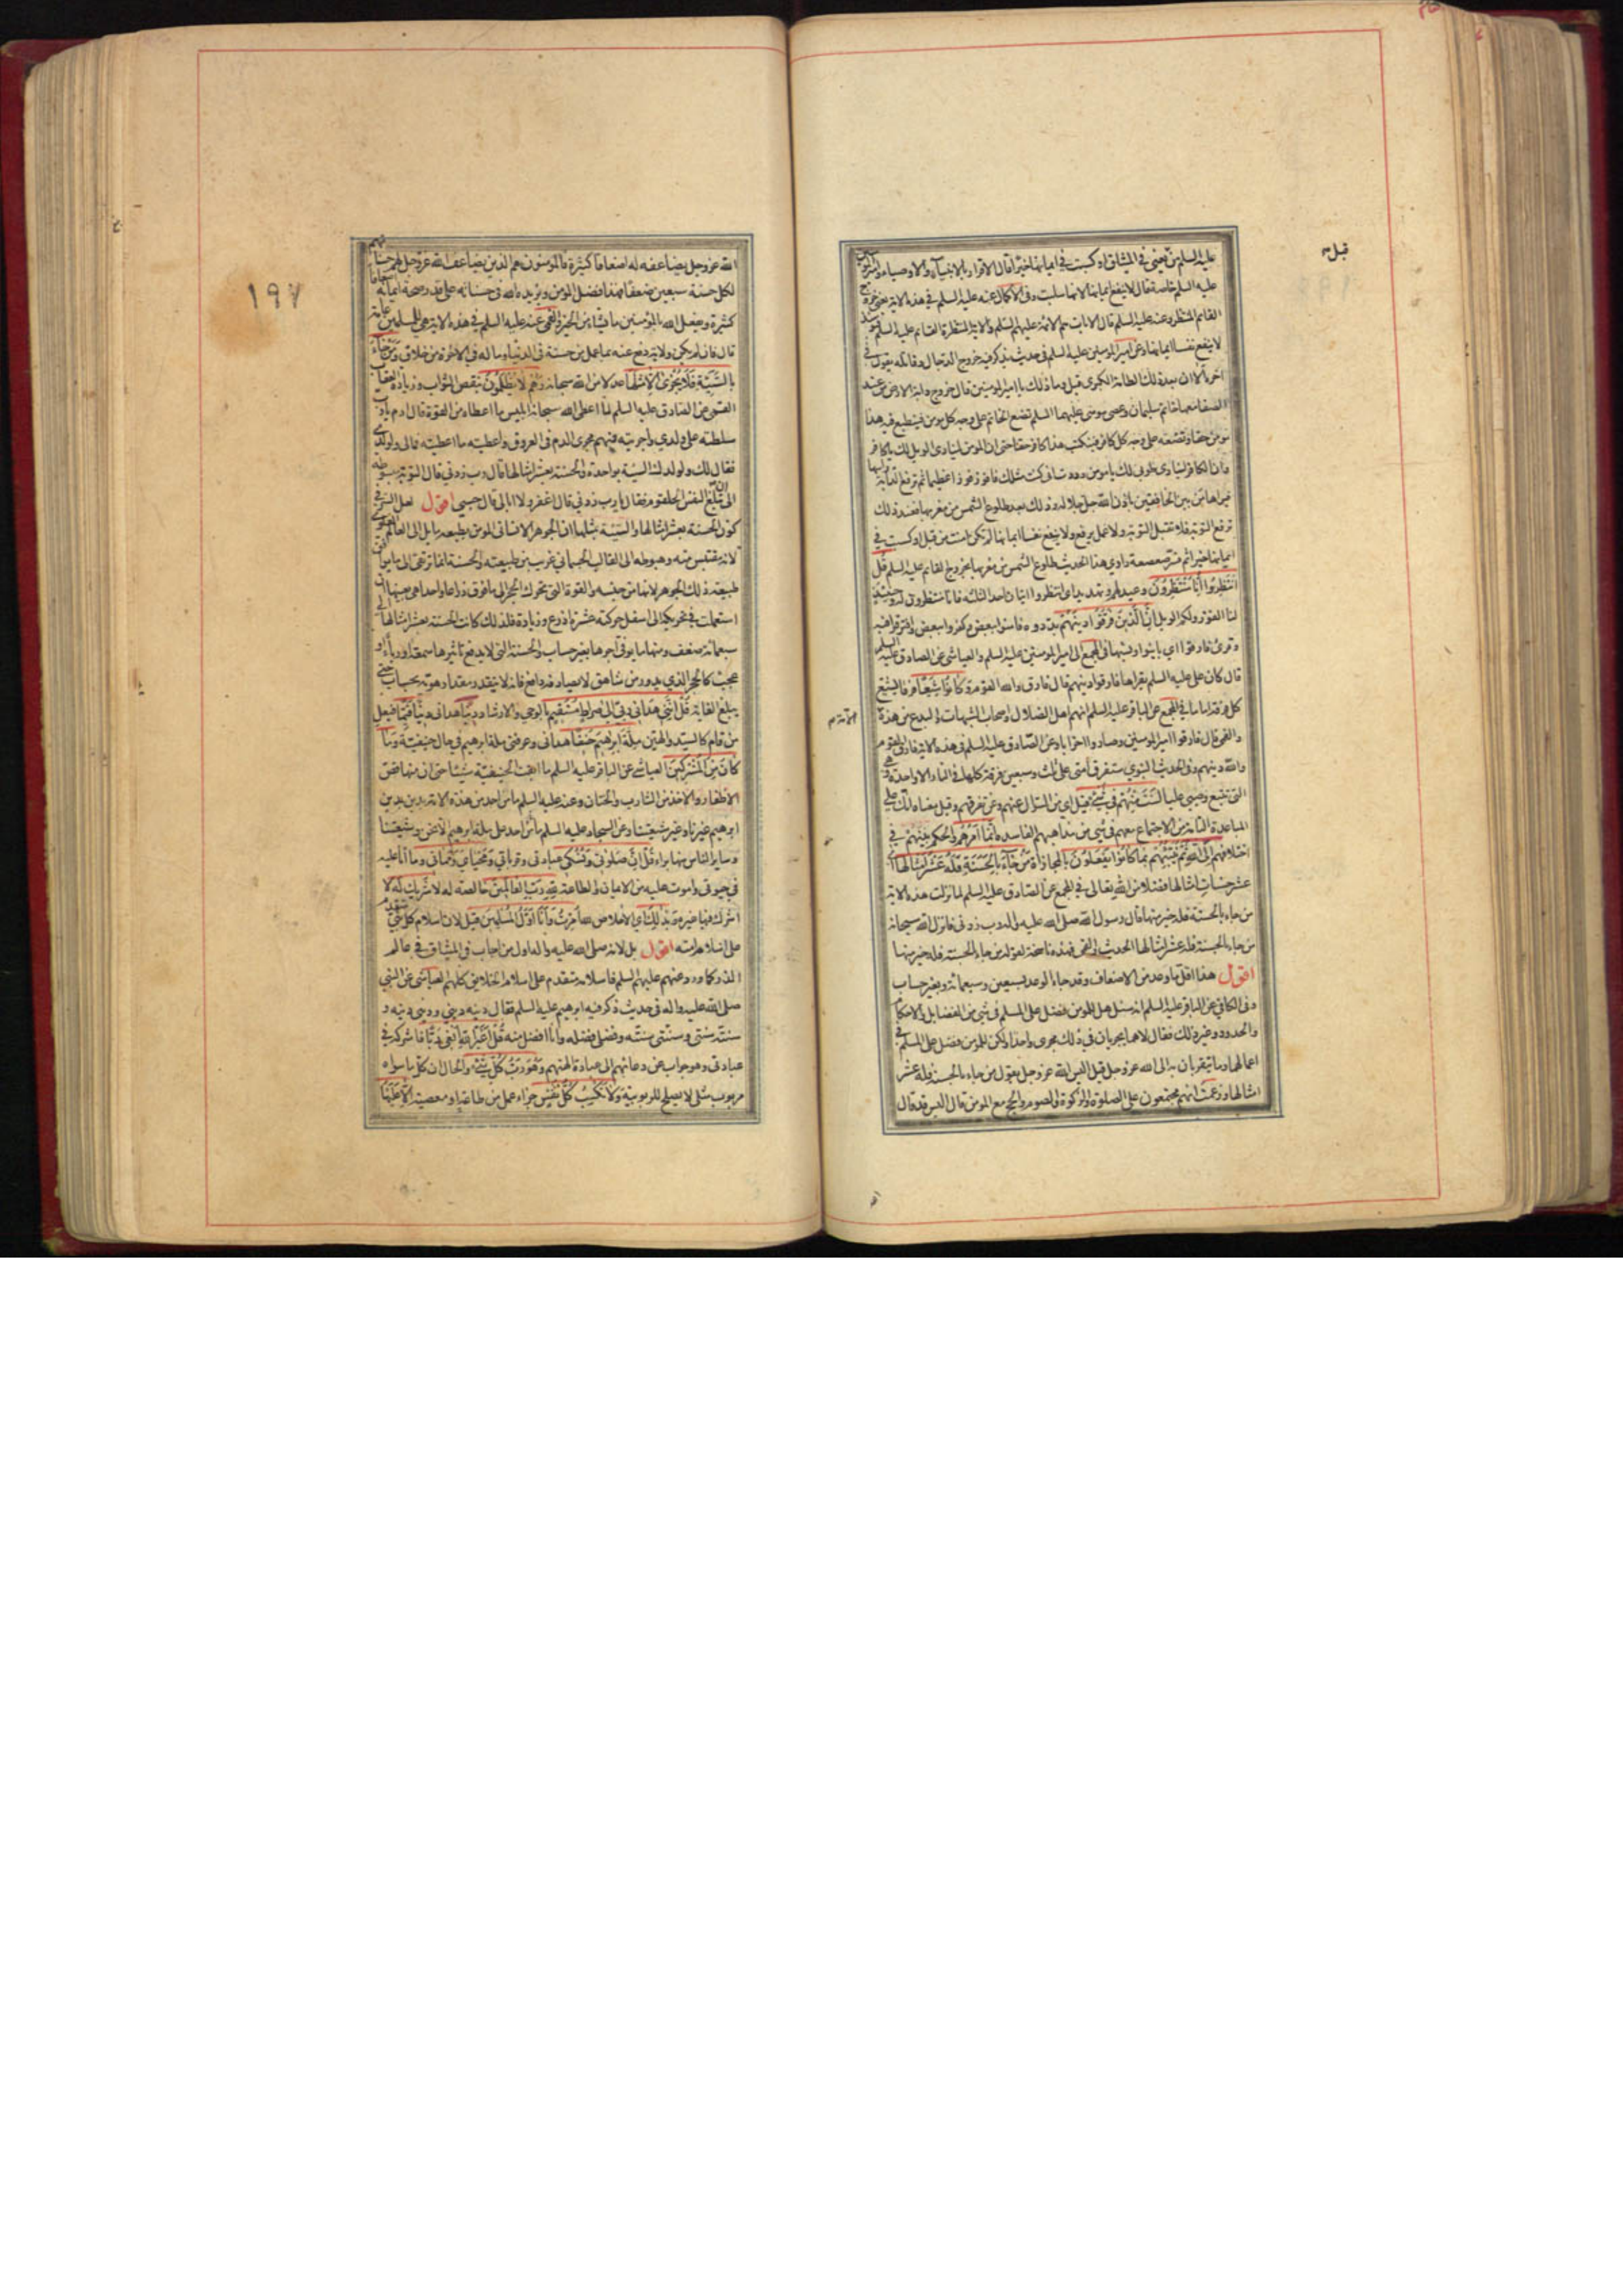 قبل
عليه السلم من يعنى في الميثاق او كسبت في ايمانها خيرا قال الاقرار بالانبياء والاوصياء وامير المؤمنين
عليه السلم خاصة قال لا ينفع ايمانها لانها سلبت وفى الاكمال عنه عليه السلم في هذه الاية يعنى خروج
القائم المنتظر وعنه عليه السلم قال الايات هم الائمة عليهم السلم والاية المنتظرة القائم عليه السلم
لا ينفع نفسا ايمانها وعن امير المؤمنين عليه السلم في حديث يذكر فيه خروج الدجال وقاتله يقول في
اخره الا ان بعد ذلك الطامة الكبرى قيل وما ذلك يا امير المؤمنين قال خروج دابة الارض من عند
الصفا معها خاتم سليمان وعصى موسى عليهما السلم تضع الخاتم على وجه كل مومن فينطبع فيه هذا
مومن حقا وتضعه على وجه كل كافر فيكتب هذا كافر حقا حتى ان المومن لينادى الويل لك يا كافر
وان الكافر لينادى طوبى لك يا مومن وددت انى كنت مثلك فافوز فوزا عظيما ثم ترفع الدابة راسها
فيراها من بين الخافقين باذن الله جل جلاله وذلك بعد طلوع الشمس من مغربها فعند ذلك
ترفع التوبة فلا تقبل التوبة ولا عمل يرفع ولا ينفع نفسا ايمانها لم تكن امنت من قبل او كسبت في
ايمانها خيرا ثم فسر صعصعة راوي هذا الحديث طلوع الشمس من مغربها بخروج القائم عليه السلم قل
انْتَظِرُوا اِنَّا مُنْتَظِرُونَ وعيد لهم وتهديد اى انتظروا اتيان احد الثلثة فانا منتظرون له وحينئذ
لنا الفوز ولكم الويل اِنَّ الَّذِينَ فَرَّقُوا دِينَهُمْ بددوه فامنوا ببعض وكفروا ببعض وافترقوا فيه
وقرئ فارقوا اي باينوا ونسبها في المجمع الى امير المومنين عليه السلم والعياشى عن الصادق عليه السلم
قال كان على عليه السلم يقراها فارقوا دينهم قال فارق والله القوم وَكَانُوا شِيَعًا فرقا تشيع
كل فرقة اماما في المجمع عن الباقر عليه السلم انهم اهل الضلال واصحاب الشبهات والبدع من هذه الامة
والقمى قال فارقوا امير المومنين وصاروا احزابا وعن الصادق عليه السلم في هذه الاية فارق القوم
والله دينهم وفى الحديث النبوي ستفرق أمتى على ثلث وسبعين فرقة كلها في النار الا واحدة وهى
التى تتبع وصيى عليا لَسْتَ مِنْهُمْ فِي شَيْءٍ قيل اي من السؤال عنهم وعن تفرقهم وقيل معناه انك على
المباعدة التامة من الاجتماع معهم في شيء من مذاهبهم الفاسدة اِنَّمَا اَمْرُهُمْ والحكم بينهم في
اختلافهم اِلَى اللهِ ثُمَّ يُنَبِّئُهُمْ بِمَا كَانُوا يَفْعَلُونَ بالمجازاة مَنْ جَاءَ بِالْحَسَنَةِ فَلَهُ عَشْرُ اَمْثَالِهَا اى
عشر حسنات امثالها فضلا من الله تعالى في المجمع عن الصادق عليه السلم لما نزلت هذه الاية
من جاء بالحسنة فله خير منها قال رسول الله صلى الله عليه واله رب زدنى فانزل الله سبحانه
من جاء بالحسنة فله عشر امثالها الحديث والقمى فهذه ناسخة لقوله من جاء بالحسنة فله خير منها
اقول هذا اقل ما وعد من الاضعاف وقد جاء الوعد بسبعين وسبعمائة وبغير حساب
وفى الكافي عن الباقر عليه السلم انه سئل هل للمومن فضل على المسلم في شئ من الفضايل والاحكام
والحدود وغير ذلك فقال لا هما يجريان في ذلك مجرى واحدا ولكن للمومن فضل على المسلم في
اعمالهما وما يتقربان به الى الله عز وجل قيل اليس الله عز وجل يقول من جاء بالحسنة فله عشر
امثالها وزعمت انهم مجتمعون على الصلوة والزكوة والصوم والحج مع المومن قال اليس قد قال
١٩٧
الله عز وجل يضاعفه له اضعافا كثيرة فالمومنون هم الذين يضاعف الله عز وجل لهم حسناتهم
لكل حسنة سبعين ضعفا فهذا فضل المومن ويزيده الله في حسناته على قدر صحة ايمانه اضعافا
كثيرة ويفعل الله بالمومنين ما يشاء من الخير والقمى عنه عليه السلم في هذه الاية هى للمسلمين عامة
قال فان لم يكن ولاية دفع عنه بما عمل من حسنة في الدنيا وما له في الاخرة من خلاق وَمَنْ جَاءَ
بِالسَّيِّئَةِ فَلَا يُجْزَى اِلَّا مِثْلَهَا عدلا من الله سبحانه وَهُمْ لَا يُظْلَمُونَ بنقص الثواب وزيادة العقاب
القمى عن الصادق عليه السلم لما اعطى الله سبحانه ابليس ما اعطاه من القوة قال ادم يا رب
سلطته على ولدي واجريته فيهم مجرى الدم في العروق واعطيته ما اعطيته فمالى ولولدي
فقال لك ولولدك السيئة بواحدة والحسنة بعشر امثالها قال رب زدني قال التوبة مبسوطة
الى ان تبلغ النفس الحلقوم فقال يا رب زدني قال اغفر ولا ابالى قال حسبى اقول لعل السر في
كون الحسنة بعشر امثالها والسيئة بمثلها ان الجوهر الانسانى المومن بطبعه مايل الى العالم العلوي
لانه مقتبس منه وهبوطه الى القالب الجسمانى غريب من طبيعته والحسنة انما ترتقى الى ما يوافق
طبيعة ذلك الجوهر لانها من جنسه والقوة التى تحرك الحجر الى ما فوق ذراعا واحدا هى بعينها ان
استعملت في تحريكه الى اسفل حركته عشرة اذرع وزيادة فلذلك كانت الحسنة بعشر امثالها الى
سبعمائة ضعف ومنها ما يوفى اجرها بغير حساب والحسنة التى لا يدفع تاثيرها سمعة او رياء او
عجب كالحجر الذي يدور من شاهق لا يصادفه دافع فانه لا يتقدر مقدار هويه بحساب حتى
يبلغ الغاية قُلْ اِنَّنِي هَدَانِي رَبِّي اِلَى صِرَاطٍ مُسْتَقِيمٍ بالوحى والارشاد دِينًا هدانى دينا قِيَمًا فيعل
من قام كالسيد والهين مِلَّةَ اِبْرٰهِيمَ حَنِيفًا هدانى وعرفنى ملة ابرهيم في حال حنيفيته وَمَا
كَانَ مِنَ الْمُشْرِكِينَ العياشى عن الباقر عليه السلم ما ابقت الحنيفية شيئا حتى ان منها قص
الاظفار والاخذ من الشارب والختان وعنه عليه السلم ما من احد من هذه الامة يدين بدين
ابرهيم غيرنا وغير شيعتنا وعن السجاد عليه السلم ما من احد على ملة ابرهيم الا نحن وشيعتنا
وساير الناس منها براء قُلْ اِنَّ صَلٰوتِي وَنُسُكِي عبادتى وقربانى وَمَحْيَايَ وَمَمَاتِي وما انا عليه
في حيوتى واموت عليه من الايمان والطاعة لِلهِ رَبِّ الْعَالَمِينَ خالصة له لَا شَرِيكَ لَهُ لا
اشرك فيها غيره وَبِذَلِكَ اي الاخلاص لله اُمِرْتُ وَاَنَا اَوَّلُ الْمُسْلِمِينَ قيل لان اسلام كل نبى متقدم
على اسلام امته اقول بل لانه صلى الله عليه واله اول من اجاب في الميثاق في عالم
الذر كما ورد عنهم عليهم السلم فاسلامه متقدم على اسلام الخلايق كلهم العياشى عن النبى
صلى الله عليه واله في حديث ذكر فيه ابرهيم عليه السلم فقال دينه ديني وديني دينه و
سنته سنتى وسنتى سنته وفضلى فضله وانا افضل منه قُلْ اَغَيْرَ اللهِ اَبْغِي رَبًّا فاشركه في
عبادتى وهو جواب عن دعائهم الى عبادة الهتهم وَهُوَ رَبُّ كُلِّ شَيْءٍ والحال ان كل ما سواه
مربوب مثلى لا يصلح للربوبية وَلَا تَكْسِبُ كُلُّ نَفْسٍ جزاء عمل من طاعة او معصية اِلَّا عَلَيْهَا